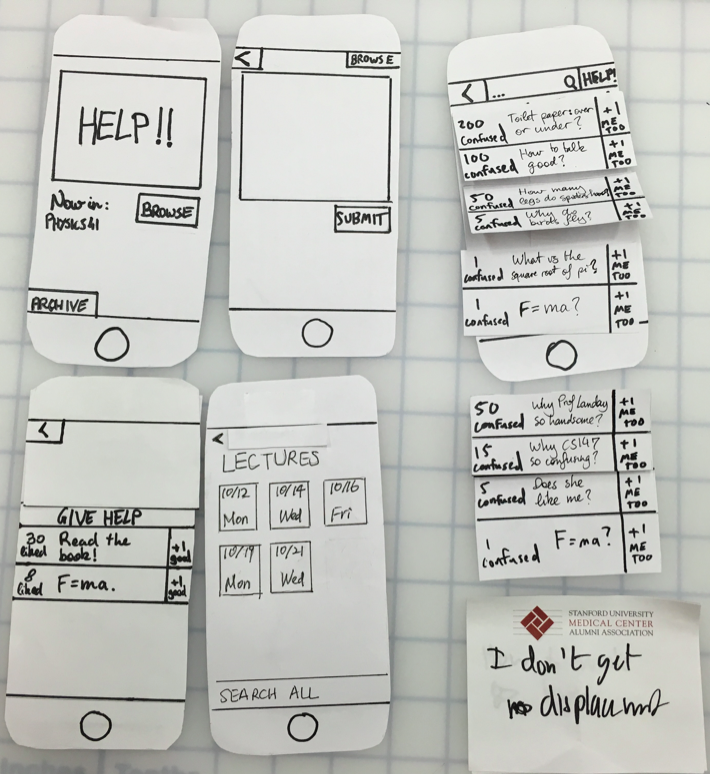 HELP!!
Now in:
PHYSICS41
BROWSE
ARCHIVE
<
BROWSE
SUBMIT
< ...
HELP!
200
confused
Toilet paper: over
or under?
+1
ME
TOO
100
confused
How to talk
good?
+1
ME
TOO
50
confused
How many
legs do spiders have?
+1
ME
TOO
5
confused
Why do
birds fly?
+1
ME
1
confused
What is the
square root of pi?
+1
ME
TOO
1
confused
F=ma?
+1
ME
TOO
<
GIVE HELP
30
liked
Read the
book!
+1
good
8
liked
F=ma.
+1
good
<
LECTURES
10/12
Mon
10/14
Wed
10/16
Fri
10/19
Mon
10/21
Wed
SEARCH ALL
50
confused
Why Prof Landay
so handsome?
+1
ME
TOO
15
confused
Why CS147
so confusing?
+1
ME
TOO
5
confused
Does she
like me?
+1
ME
TOO
1
confused
F=ma?
+1
ME
TOO
STANFORD UNIVERSITY
MEDICAL CENTER
ALUMNI ASSOCIATION
I don't get